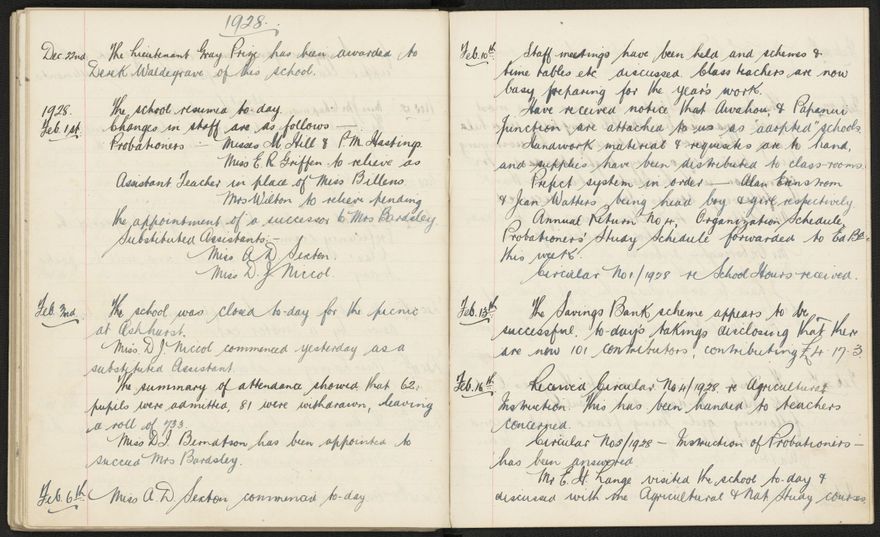 1928.
Dec. 22nd The Lieutenant Gray Prize has been awarded to
Derek Waldegrave of this school.
1928. The school resumed to-day.
Feb. 1st. Changes in staff are as follows —
Probationers — Misses M. Hill & P.M. Hastings
Miss E. R. Griffen to relieve as
Assistant Teacher in place of Miss Billens
Mrs Wilton to relieve pending
the appointment of a successor to Mrs Bardsley.
Substituted Assistants: —
Miss A D Sexton.
Miss D. J Nicol
Feb. 2nd The school was closed to-day for the picnic
at Ashhurst.
Miss D J. Nicol commenced yesterday as a
substituted Assistant.
The summary of attendance showed that 62
pupils were admitted, 81 were withdrawn, leaving
a roll of 733.
Miss D.J. Berndtson has been appointed to
succeed Mrs Bardsley.
Feb. 6th Miss A D Sexton commenced to-day
Feb. 10th Staff meetings have been held and schemes &
time tables etc discussed. Class teachers are now
busy preparing for the year's work.
Have received notice that Awahou & Papanui
Junction are attached to us as "adopted" schools
Handwork material & requisites are to hand,
and supplies have been distributed to class-rooms.
Prefect system in order — Alan Enustrom
& Jean Watters being head boy & girl respectively
Annual Return No 4, Organization Schedule,
Probationers' Study Schedule forwarded to Ed Bd.
this week.
Circular No 1/1928 re School Hours received.
Feb. 13th The Savings Bank scheme appears to be
successful, to-day's takings disclosing that there
are now 101 contributors, contributing £4-17-3
Feb. 16th Received Circular No 4/1928 re Agricultural
Instruction. This has been handed to teachers
concerned.
Circular No 5/1928 — Instruction of Probationers —
has been answered
Mr E. H. Lange visited the school to-day &
discussed with me Agricultural & Nat Study courses.